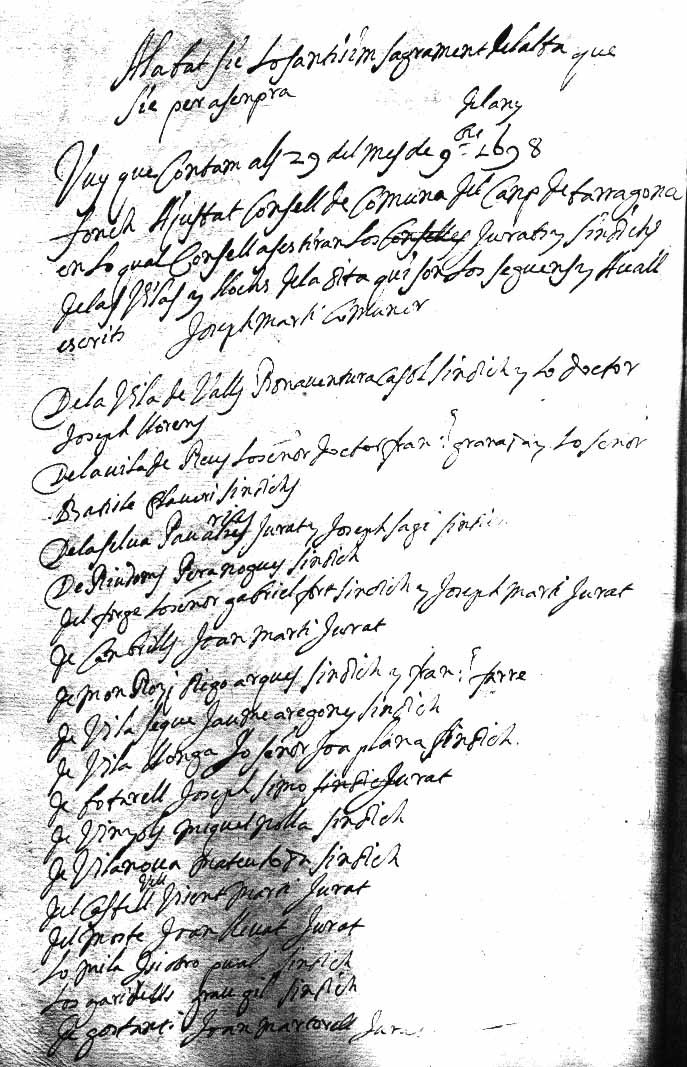 Alabat sie Lo santisim sagrament del alta que
sie per asenpra
del any
Vuy que Contam als 29 del mes de 9bre 1698
fonch Ajustat Consell de Comuna del Camp de tarragona
en Lo qual Consell asestiran los Consellés Jurats y sindichs
de las Vilas y llochs de la dita qui son los seguens y Avall
escrits Joseph Marti Comuner
De la Vila de Valls Bonaventura Casol sindich y Lo doctor
Joseph llorens
De la vila de Reus Lo señor doctor fran.ch grana y Lo señor
Batiste sindichs
De la selva Pau Jurat y Joseph sagi sindic
De Riudoms Pera nogues sindich
del forge Lo señor gabriel fort sindich y Joseph Marti Jurat
de Canbrills Joan Marti Jurat
de Mon Roig arques sindich y fran.ch farre
de Vila seque Jaume aregones sindich
de Vila llonga Lo señor Joa plana sindich.
de botarell Joseph simo sindic Jurat
de Vinyols Miquel nolla sindich
de Vilanova Mateu sindich
del Castell Vell Visent Marti Jurat
del morte Joan llevat Jurat
Lo mila Isidro sindich
Los garidells frau gil sindich
de Joan Martorell Jurat